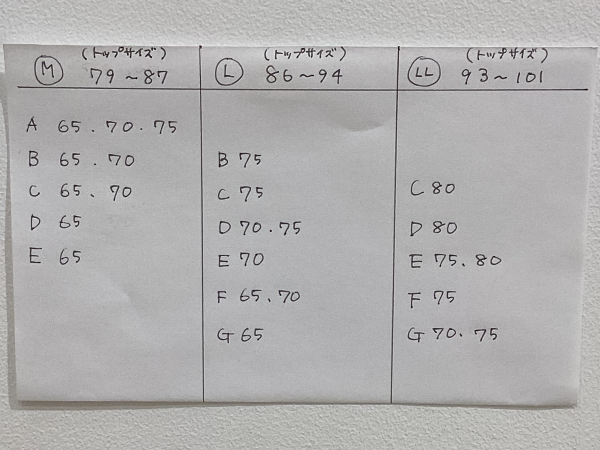 (トップサイズ)
M 79〜87
A 65.70.75
B 65.70
C 65、70
D 65
E 65
(トップサイズ)
L 86〜94
B 75
C 75
D 70.75
E 70
F 65.70
G 65
(トップサイズ)
LL 93〜101
C 80
D 80
E 75.80
F 75
G 70.75